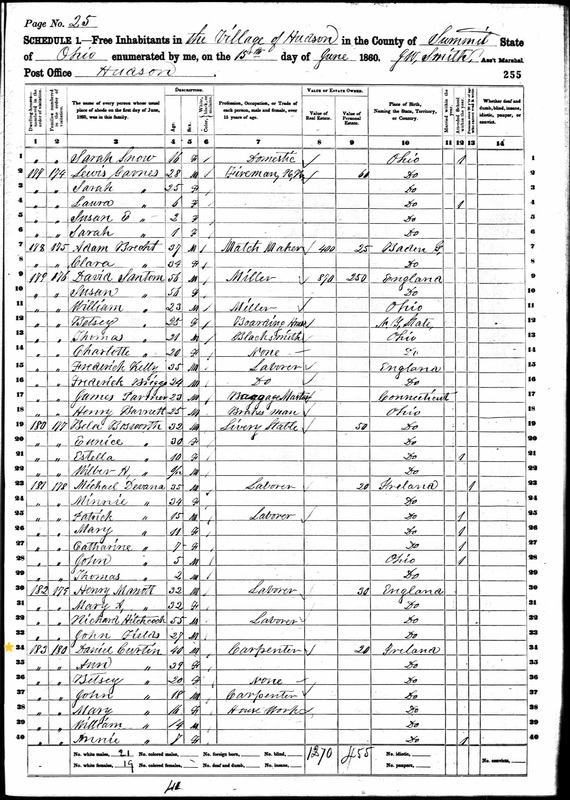 Page No. 25
SCHEDULE 1.—Free Inhabitants in the Village of Hudson in the County of Summit State
of Ohio enumerated by me, on the 15th day of June 1860. J W Smith, Ass't Marshal.
Post Office Hudson 255
DESCRIPTION. VALUE OF ESTATE OWNED.
The name of every person whose usual place of abode on the first day of June, 1860, was in this family. Age. Sex. Profession, Occupation, or Trade of each person, male and female, over 15 years of age. Value of Real Estate. Value of Personal Estate. Place of Birth, Naming the State, Territory, or Country. Married within the year. Attended School within the year. Whether deaf and dumb, blind, insane, idiotic, pauper, or convict.
1 2 3 4 5 6 7 8 9 10 11 12 13 14
1 " " Sarah Snow 16 F Domestic Ohio 1 1
2 178 174 Lewis Carnes 28 M Fireman 60 Do 2
3 " " Sarah " 25 F Do 3
4 " " Laura " 6 F Do 1 4
5 " " Susan E " 2 F Do 5
6 " " Sarah " 1 F Do 6
7 178 175 Adam Brecht 37 M Match Maker 400 25 Baden G, 7
8 " " Clara " 34 F Do 8
9 179 176 David Santom 56 M Miller 870 250 England 9
10 " " Susan " 56 F Do 10
11 " " William " 23 M Miller Ohio 11
12 " " Betsey " 25 F Boarding House N. Y. State 12
13 " " Thomas " 21 M Blacksmith Ohio 13
14 " " Charlotte " 20 F None Do 14
15 " " Frederick Kelly 35 M Laborer England 15
16 " " Frederick Briggs 24 M Do Do 16
17 " " James 23 M Baggage Master Connecticut 17
18 " " Henry Barnett 25 M Brakes man Ohio 18
19 180 177 Bela Bosworth 32 M Livery Stable 50 Do 19
20 " " Eunice " 30 F Do 20
21 " " Estella " 10 F Do 1 21
22 " " Wilber H, " M Do 22
23 181 178 Michael Devana 35 M Laborer 20 Ireland 1 23
24 " " Minnie " 34 F Do 24
25 " " Patrick " 15 M Laborer Do 1 25
26 " " Mary " 11 F Do 1 26
27 " " Catharine " F Do 1 27
28 " " John " 5 M Ohio 1 28
29 " " Thomas " 2 M Do 29
30 182 179 Henry Marrott 32 M Laborer 30 England 30
31 " " Mary A, " 32 F Do 31
32 " " Richard Hitchcock 55 M Laborer Do 32
33 " " John Fields 27 M Do 33
34 183 180 Daniel Curtin 40 M Carpenter 20 Ireland 34
35 " " Ann " 39 F Do 35
36 " " Betsey " 20 F None Do 36
37 " " John " 18 M Carpenter Do 37
38 " " Mary " 16 F House Work Do 38
39 " " William " 14 M Do 39
40 " " Annie " 7 F Do 1 40
No. white males, 21 No. colored males, No. foreign born, No. blind, 1270 455 No. idiotic, No. convicts,
No. white females, 19 No. colored females, No. deaf and dumb, No. insane, No. paupers,